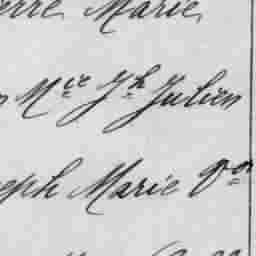 erre Marie
Mce Jh Julien
eph Marie